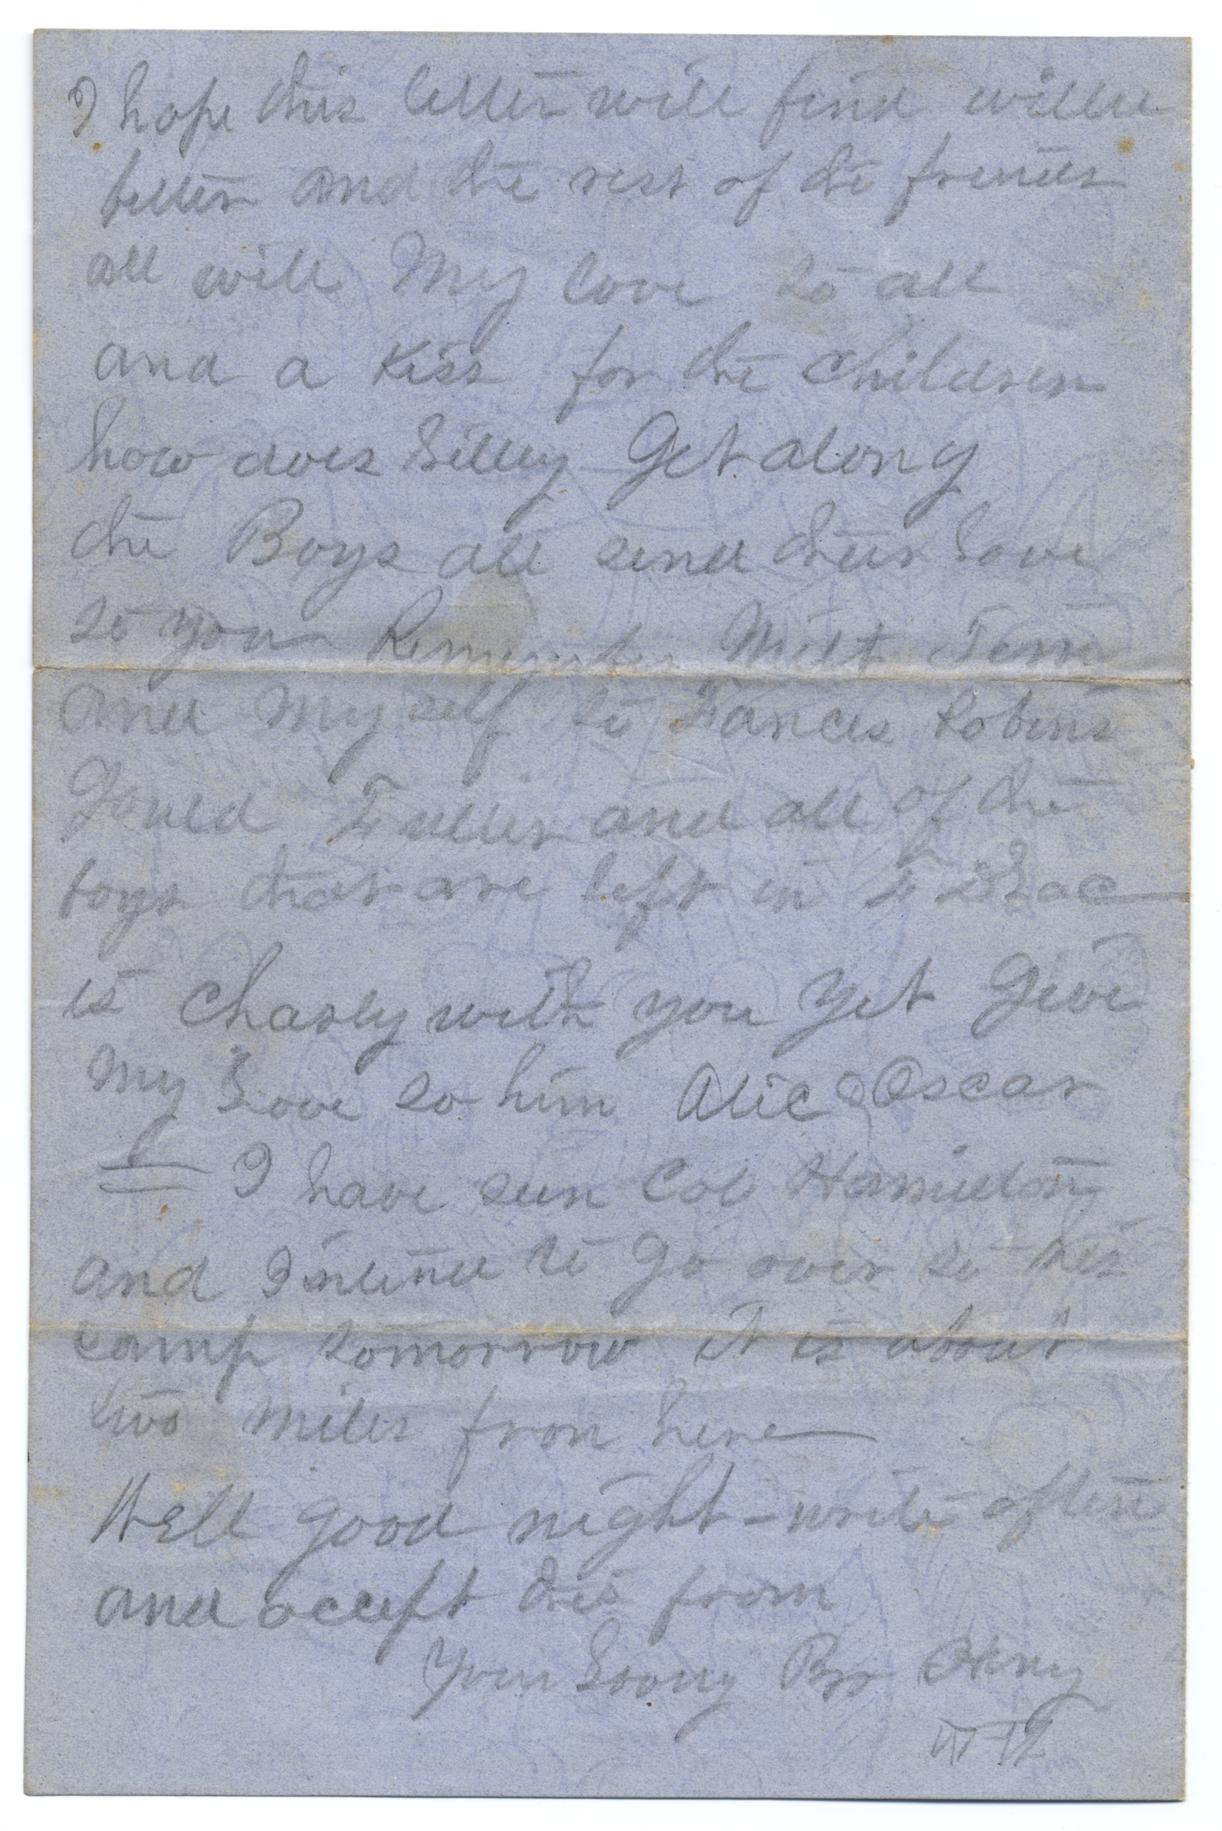 I hope this letter will find willie
better and the rest of the friends
all well My love to all
and a Kiss for the children
how does Lilley Get along
the Boys all send their Love
to you Remember Milt Tom
and My self to Frances Robins
Gould Fuller and all of the
boys that are left in
is Charley with you yet Give
My Love to him Alic & Oscar
I have seen Col Hamilton
and I intend to go over to his
camp tomorrow it is about
two miles from here
Well good night - write often
and accept this from
Your Loving Bro Heny